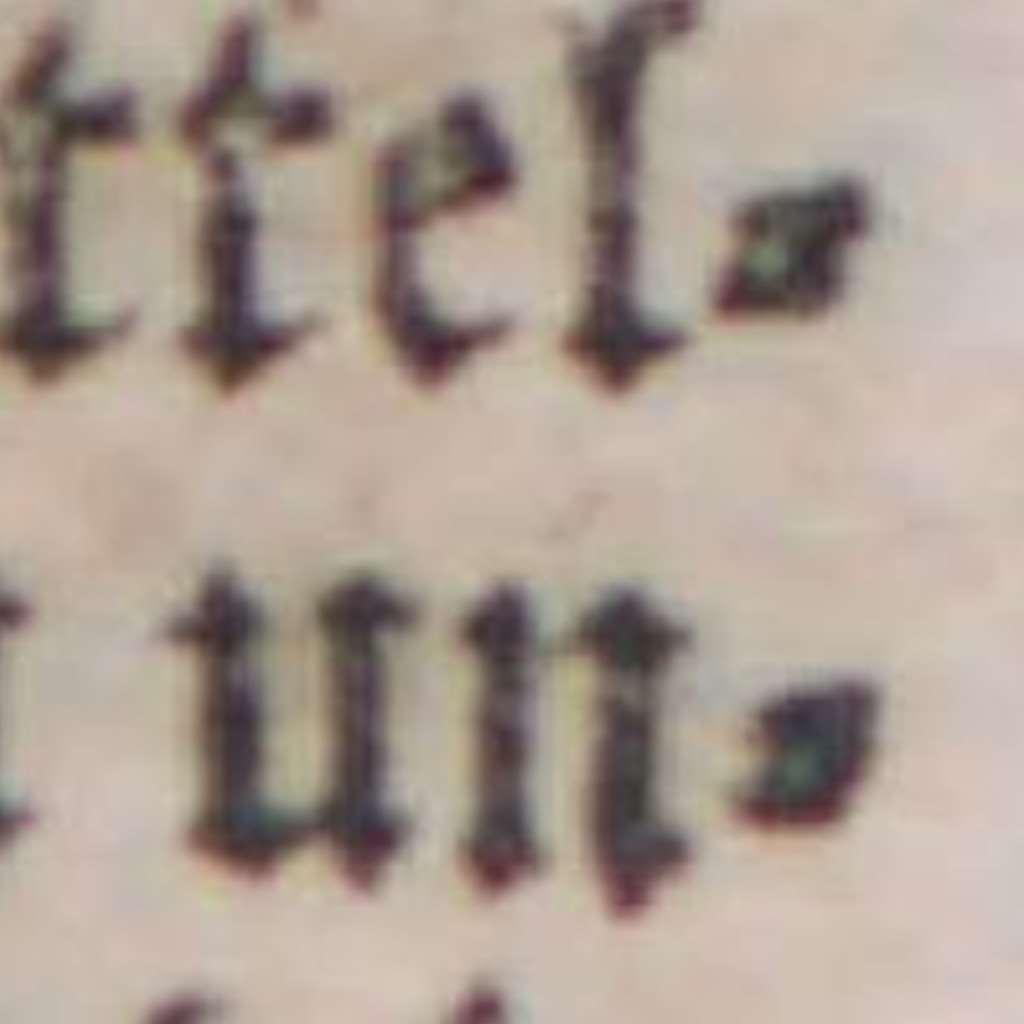 ttel-
un-